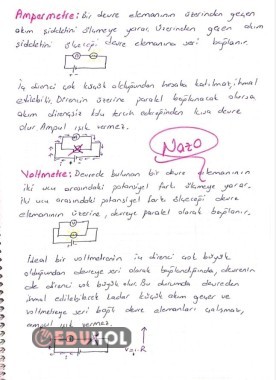 Ampermetre: Bir devre elemanının üzerinden geçen
akım şiddetini ölçmeye yarar. Üzerinden geçen akım
şiddetini ölçeceği devre elemanına seri bağlanır.
İç direnci çok küçük olduğundan hesaba katılmaz, ihmal
edilebilir. Devrenin üzerine paralel bağlanacak olursa
akım dirençsiz kolu tercih edeceğinden kısa devre
olur. Ampul ışık vermez.
Nazo
Voltmetre: Devrede bulunan bir devre elemanının
iki ucu arasındaki potansiyel farkı ölçmeye yarar.
İki ucu arasındaki potansiyel farkı ölçeceği devre
elemanının üzerine, devreye paralel olarak bağlanır.
İdeal bir voltmetrenin iç direnci çok büyük
olduğundan devreye seri olarak bağlandığında, devrenin
de direnci çok büyük olur. Bu durumda devreden
ihmal edilebilecek kadar küçük akım geçer ve
voltmetreye seri bağlı devre elemanları çalışmaz,
ampul ışık vermez.
EDUHOL
V=I.R